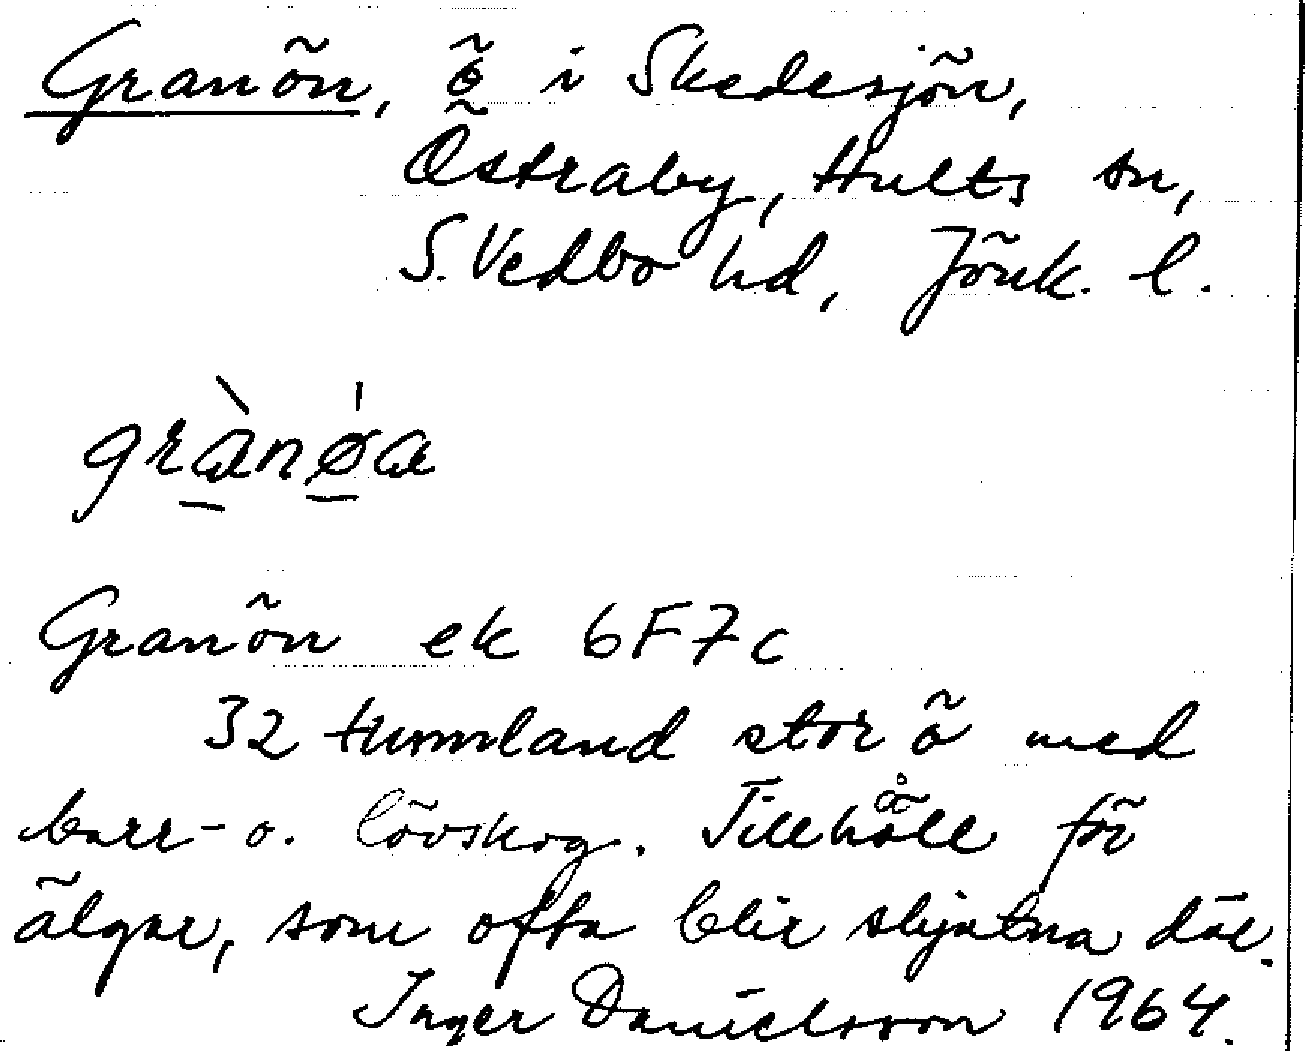 Granön, ö i Skedesjön,
Östraby, Hults sn,
S. Vedbo hd, Jönk. l.
grànø̀a
Granön ek 6F7c
32 tunnland stor ö med
barr- o. lövskog. Tillhåll för
älgar, som ofta blir skjutna där.
Inger Danielsson 1964.